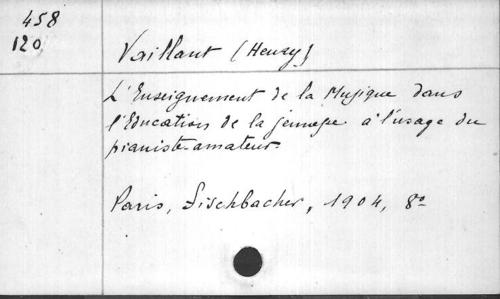 458
120
Vaillant (Henry)
L'Enseignement de la Musique dans
l'Education de la jeunesse à l'usage du
pianiste-amateur.
Paris, Fischbacher, 1904, 8º